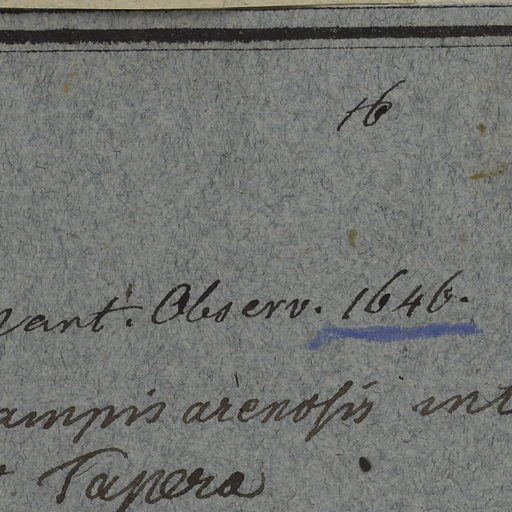 16
Mart. Observ. 1646.
ampis arenosis int
Tapera